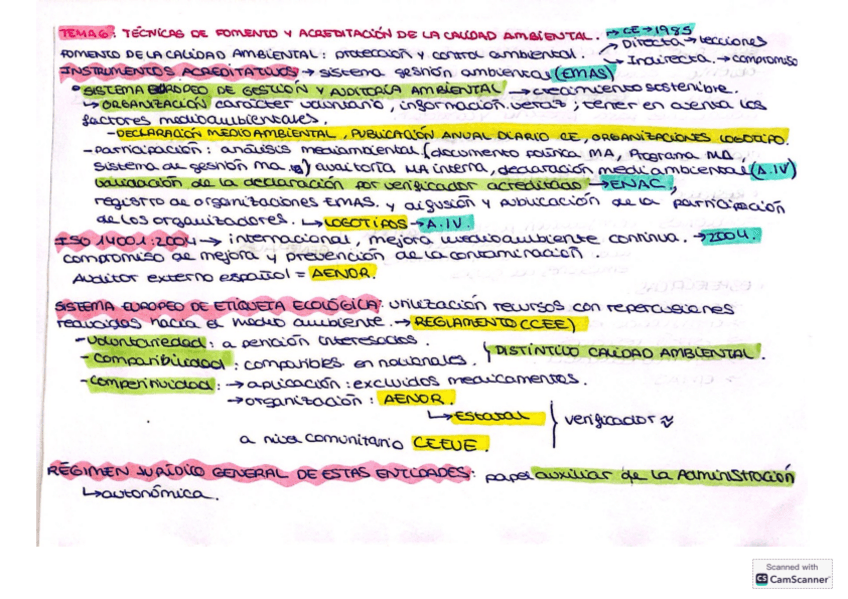 TEMA 6: TÉCNICAS DE FOMENTO Y ACREDITACIÓN DE LA CALIDAD AMBIENTAL. → CE → 1985
FOMENTO DE LA CALIDAD AMBIENTAL: protección y control ambiental. → Directa → lecciones
→ Indirecta → compromiso
INSTRUMENTOS ACREDITATIVOS → sistema gesnión ambiental (EMAS)
• SISTEMA EUROPEO DE GESTIÓN Y AUDITORÍA AMBIENTAL → crecimiento sostenible.
↳ ORGANIZACIÓN carácter voluntario, información veraz; tener en cuenta los
factores medioambientales.
- DECLARACIÓN MEDIOAMBIENTAL, PUBLICACIÓN ANUAL DIARIO CE, ORGANIZACIONES LOGOTIPO.
- Participación: análisis medioambiental (documento política MA, Programa MA,
sistema de gestión MA) auditoría MA interna, declaración medioambiental (A.IV)
validación de la declaración por verificador acreditado → ENAC,
registro de organizaciones EMAS. y difusión y publicación de la participación
de los organizadores. ↳ LOGOTIPOS → A.IV.
ISO 14001:2004 → internacional, mejora medioambiente continua. → 2004.
compromiso de mejora y prevención de la contaminación.
Auditor externo español = AENOR.
SISTEMA EUROPEO DE ETIQUETA ECOLÓGICA: utilización recursos con repercusiones
reducidas hacia el medio ambiente. → REGLAMENTO (CCEE)
- Voluntariedad: a petición interesados.
- Compatibilidad: compatibles en nacionales. DISTINTIVO CALIDAD AMBIENTAL.
- Competitividad: → aplicación: excluidos medicamentos.
→ organización: AENOR.
↳ Estatal verificador
a nivel comunitario CEEUE.
RÉGIMEN JURÍDICO GENERAL DE ESTAS ENTIDADES: papel auxiliar de la Administración
↳ autonómica.
Scanned with
CS CamScanner